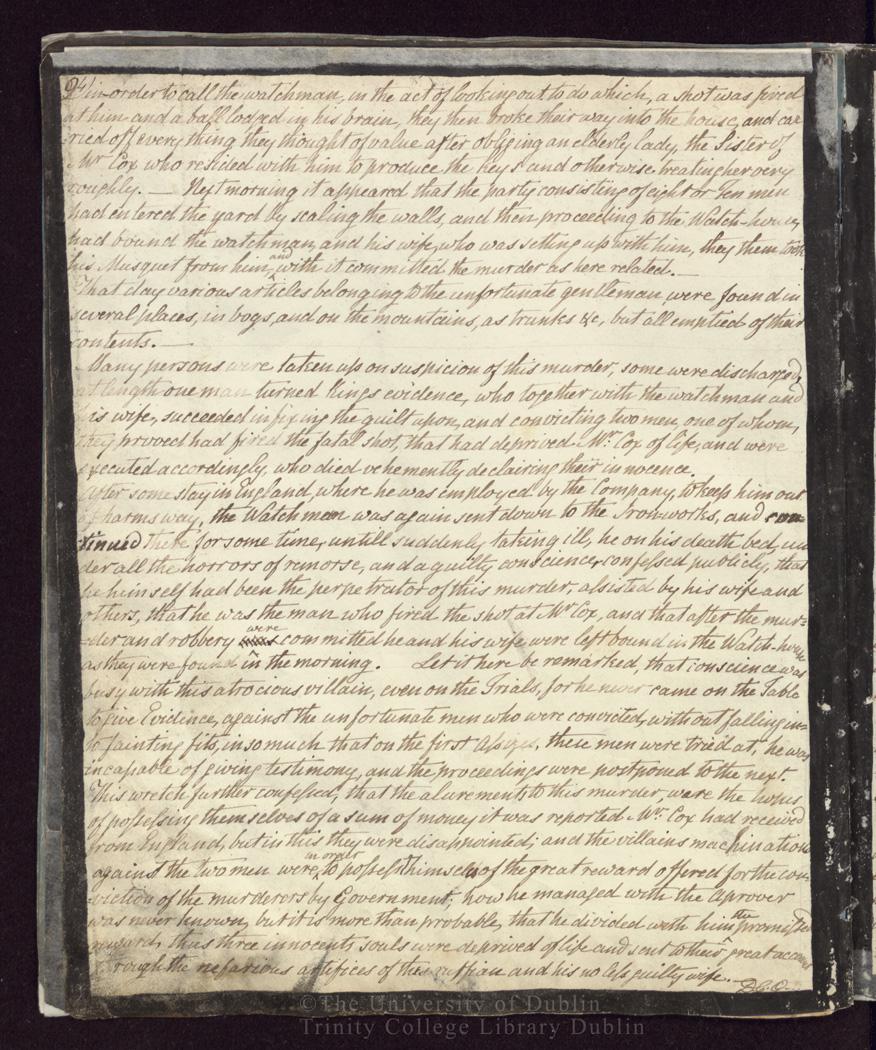 24/ in order to call the watchman, in the act of looking out to do which, a shot was fired
at him and a ball lodged in his brain, they then broke their way into the house, and car
ried off every thing they thought of value after obliging an elderly lady, the Sister of
Mr Cox who resided with him to produce the keys and otherwise treating her very
roughly. — Next morning it appeared that the party consisting of eight or Ten men
had entered the yard by scaling the walls, and then proceeding to the Watch-house,
had bound the watchman, and his wife, who was setting up with him, they them took
his Musquet from him, and with it committed the murder as here related. —
That day various articles belonging to the unfortunate gentleman were found in
several places, in bogs, and on the mountains, as trunks &c, but all emptied of their
contents. —
Many persons were taken up on suspicion of this murder, some were discharged,
at length one man turned Kings evidence, who together with the watchman and
his wife, succeeded in fixing the guilt upon, and convicting two men, one of whom,
they proved had fired the fatal shot, that had deprived Mr. Cox of life, and were
executed accordingly, who died vehemently declairing their innocence.
After some stay in England, where he was employed by the Company, to keep him out
of harms way, the Watchman was again sent down to the Iron-works, and con-
tinued there for some time, untill suddenly taking ill, he on his death bed, un
der all the horrors of rimorse, and a guilty conscience, confessed publicly, that
he himself had been the perpetrator of this murder, assisted by his wife and
others, that he was the man who fired the shot at Mr Cox, and that after the mur-
-der and robbery were committed he and his wife were left bound in the Watch-house
as they were found in the morning. Let it here be remarked, that conscience was
busy with this atrocious villain, even on the Trials, for he never came on the Table
to give Evidence, against the unfortunate men who were convicted, without falling in-
to fainting fits, in so much that on the first Assizes, these men were tried at, he was
incapable of giving testimony, and the proceedings were postponed to the next
This wretch further confessed, that the alurements to this murder were the hopes
of possessing themselves of a sum of money it was reported Mr. Cox had received
from England, but in this they were disappointed; and the villains machinations
against the two men were, in order to possess himself of the great reward offered for the con-
-viction of the murderors by Government; how he managed with the Aprover
was never known, but it is more than probable, that he divided with him the promised
reward, thus three innocents souls were deprived of life and sent to their great account
through the nefarious artifices of this ruffian and his no less guilty wife. —
©The University of Dublin
Trinity College Library Dublin